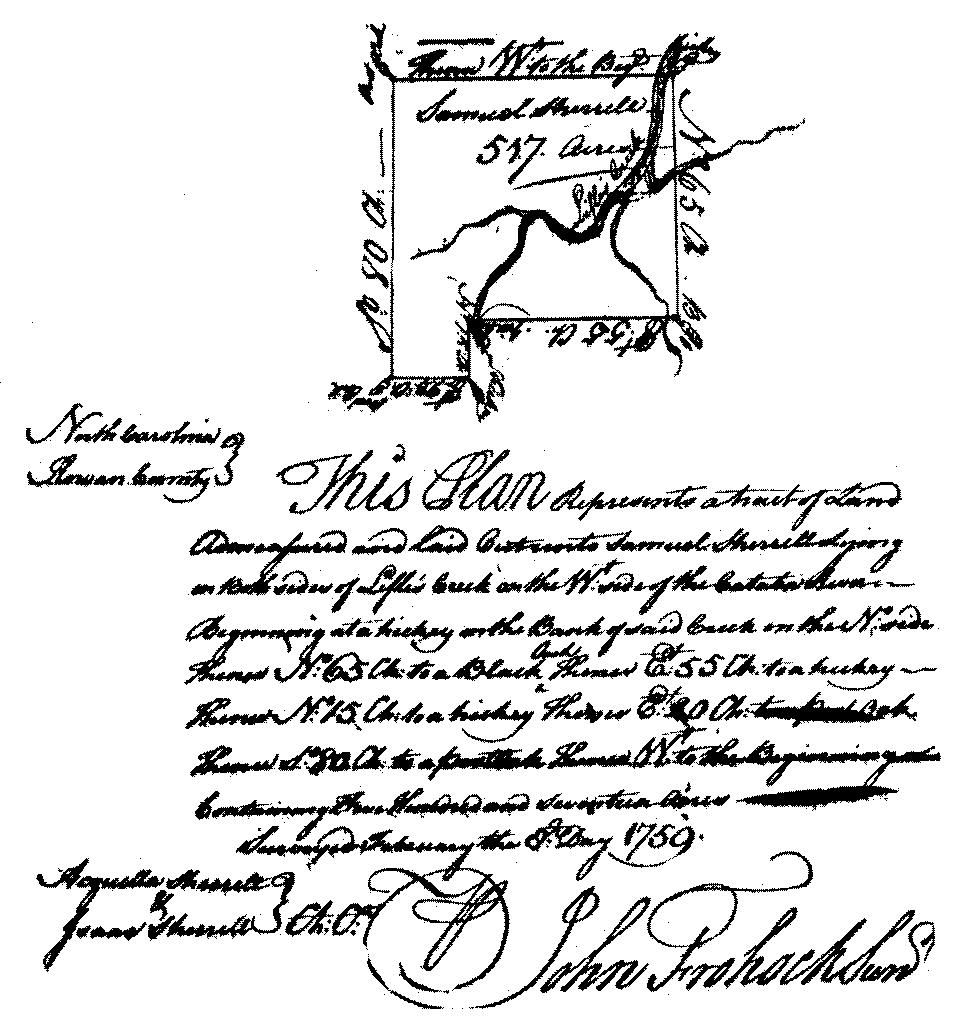 Thence Wt. to the Beg.
Samuel Sherrell
517 Acres
So 80 Ch.
No 65 Ch
Et 55 Ch.
North Carolina
Rowan County
This Plan Represents a tract of Land
Admeasured and Laid Out unto Samuel Sherrell Lying
on Both sides of Lifles Creek on the Wt. side of the Cataba River
Beginning at a hickry on the Bank of said Creek on the No. side
Thence No. 65 Ch. to a Black Oack Thence Et 55 Ch. to a hickry
Thence No. 15 Ch. to a hickry Thence Et 20 Ch. Oak
Thence So. 80 Ch. to a Thence Wt. to the Beginning
Containing five Hundred and seventeen Acres
Surveyed February the 8th. Day 1759.
Acquella Sherrell
&
Isaac Sherrell
Ch: Crs
John Frohock Survr